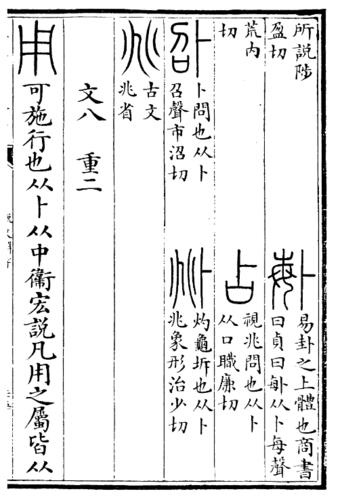 所說陟
盈切
𠧩
易卦之上體也商書
曰貞曰𠧩从卜每聲
荒内
切
占
視兆問也从卜
从口職廉切
𠧙
卜問也从卜
召聲市沼切
𠧞
灼龜坼也从卜
兆象形治少切
兆
古文
兆省
文八 重二
用
可施行也从卜从中衞宏說凡用之屬皆从